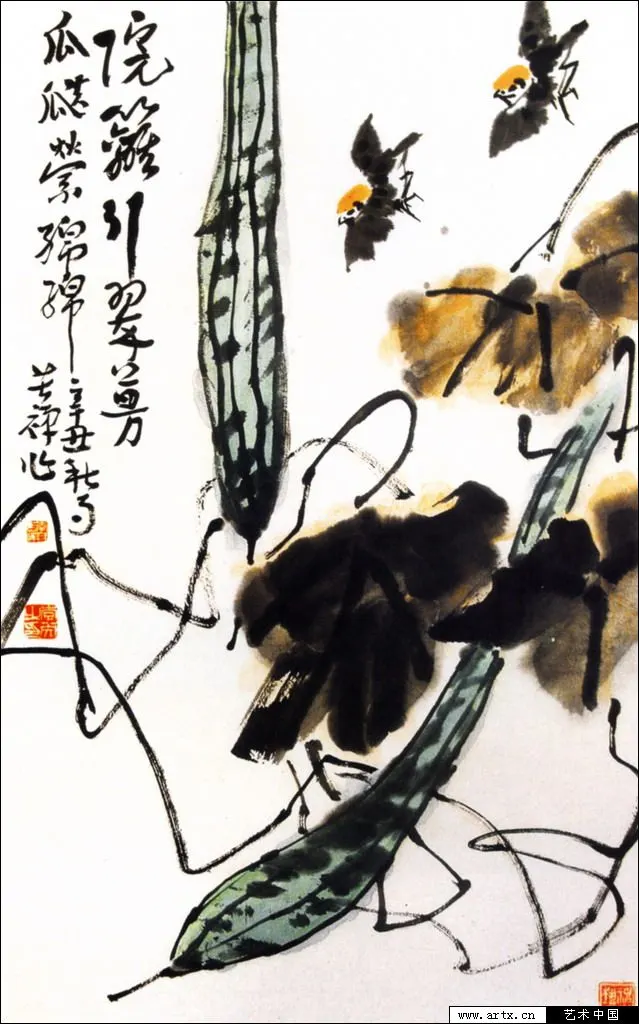 院籬引翠蔓
瓜瓞榮綿綿
辛丑秋
苦禪作
www.artx.cn 艺术中国